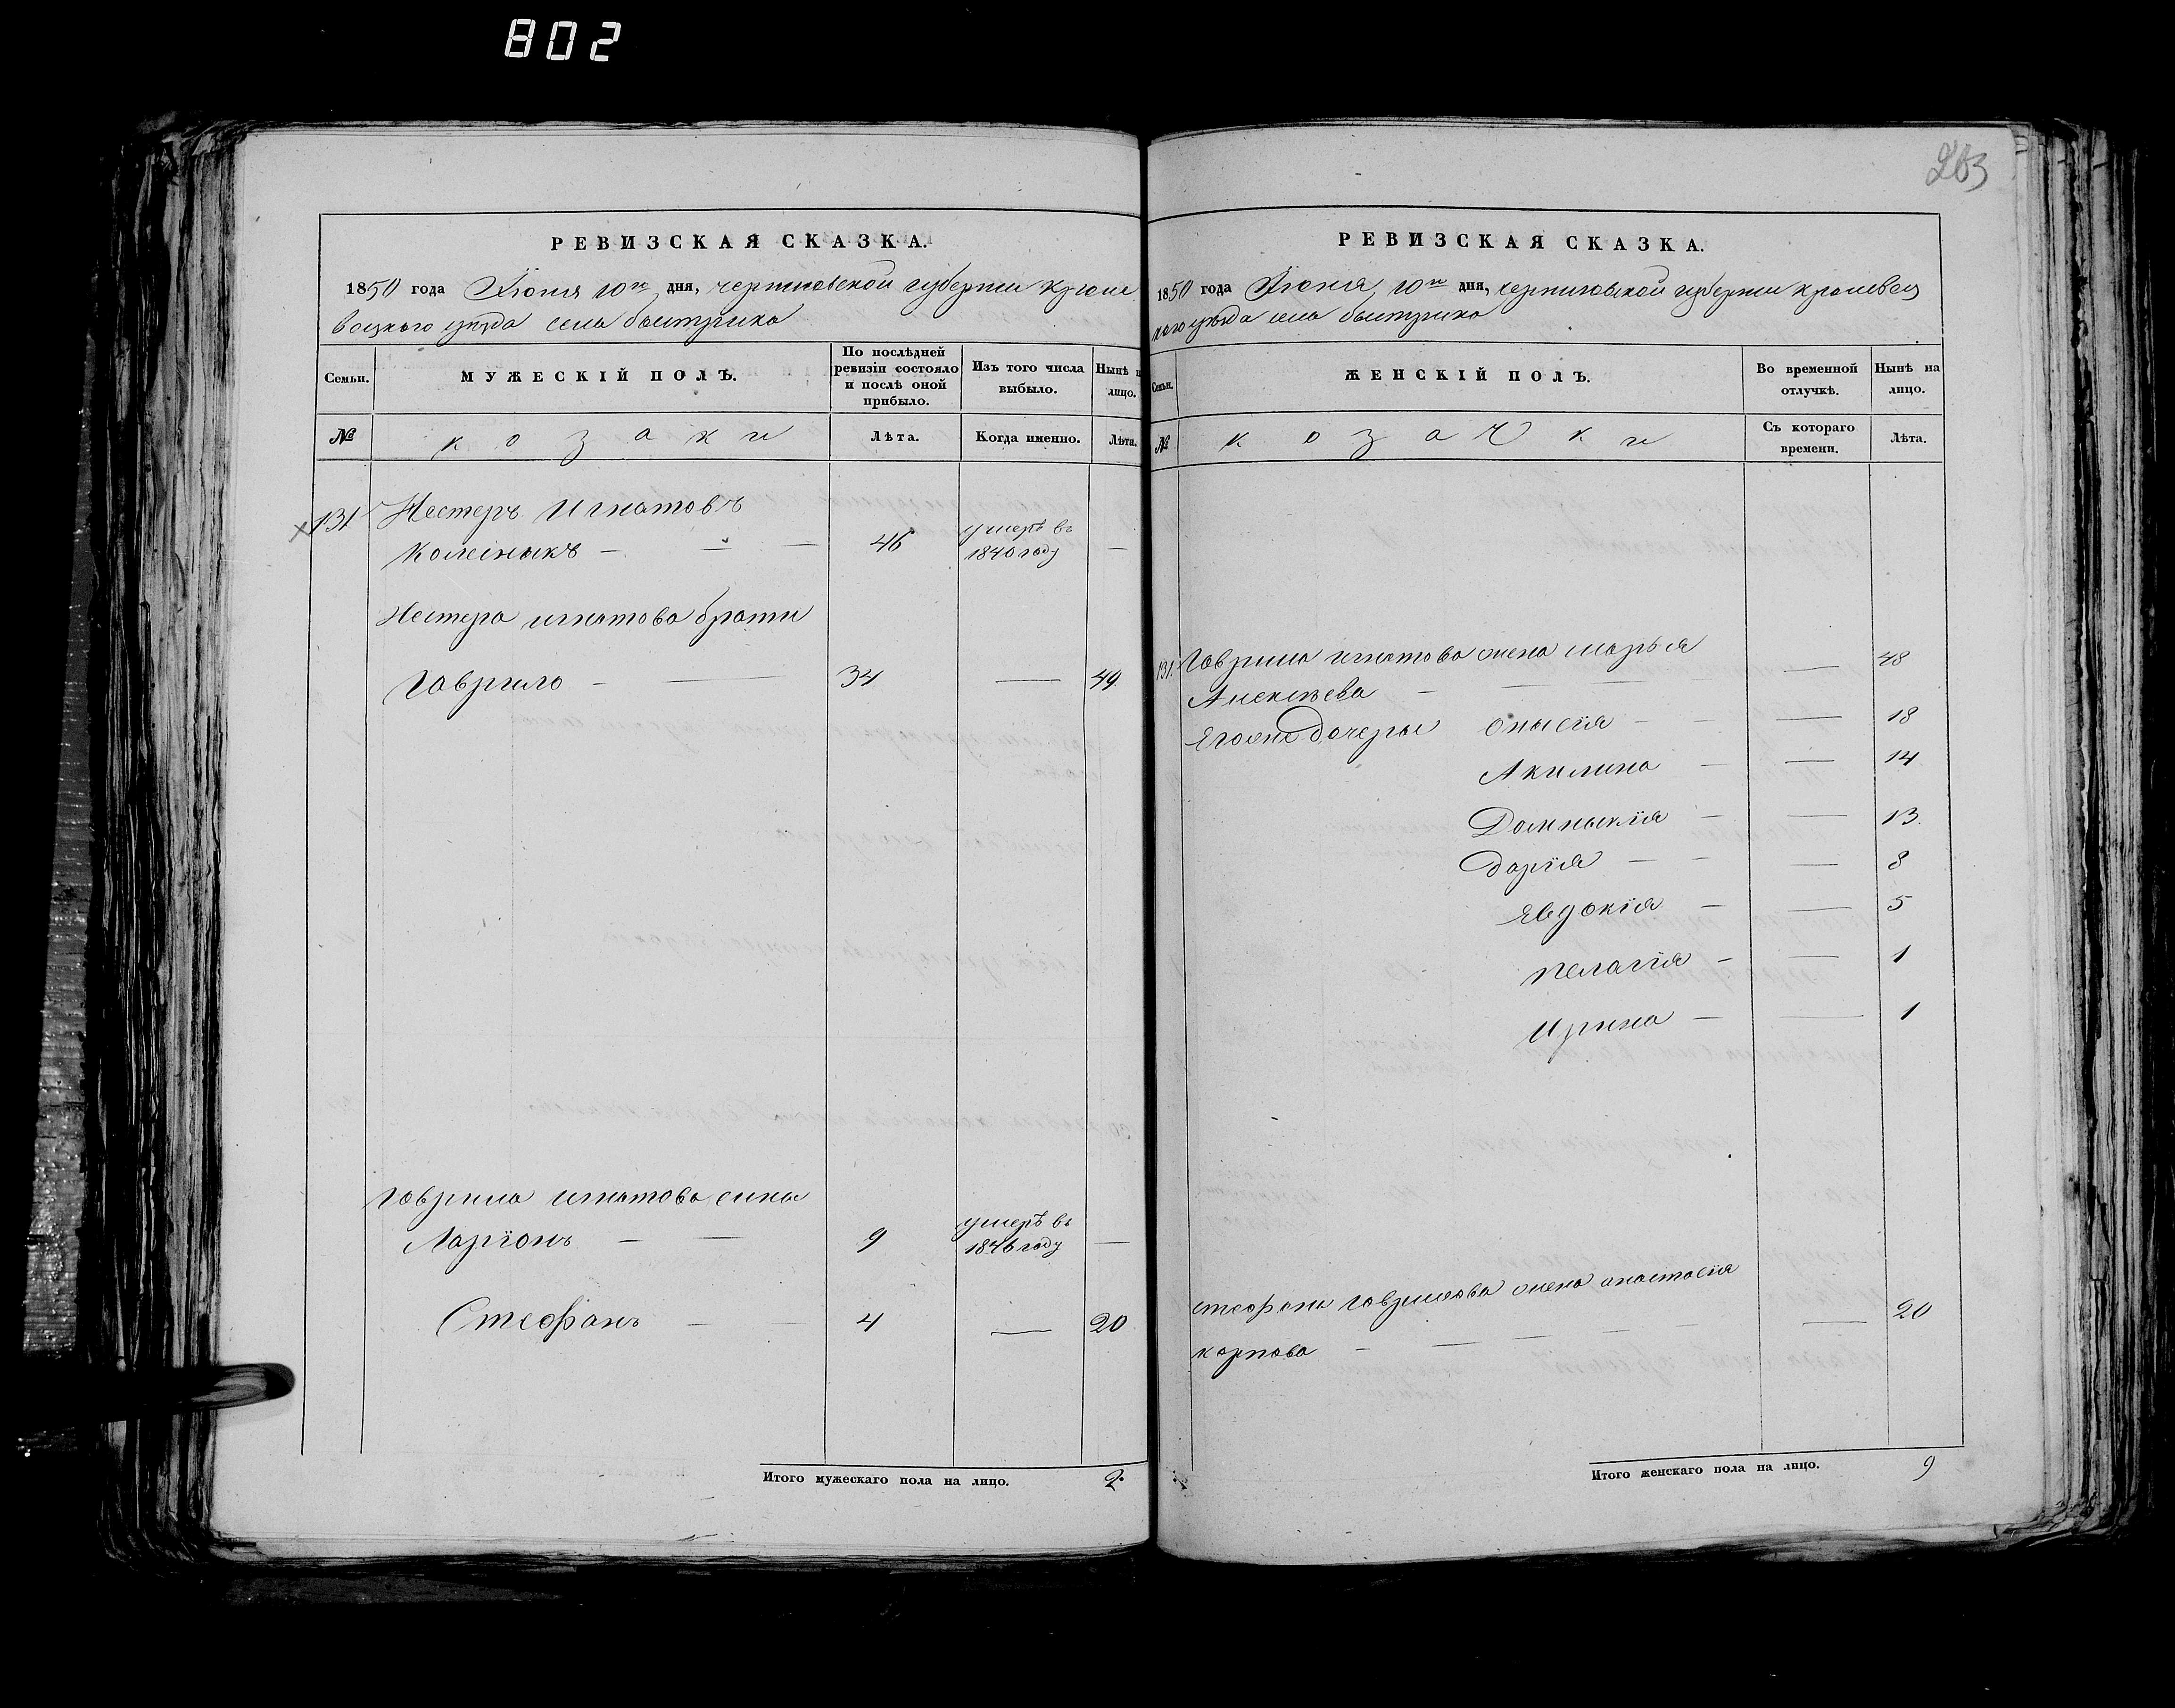 802
203
РЕВИЗСКАЯ СКАЗКА.
1850 года Июня 10го дня, черниговской губернии кроле
вецкого уезда села быстрика
Семьи.
МУЖЕСКІЙ ПОЛЪ.
По послѣдней ревизіи состояло и послѣ оной прибыло.
Изъ того числа выбыло.
Нынѣ н лицо.
№
козаки
Лѣта.
Когда именно.
Лѣта.
131 Нестеръ Игнатовъ
Колесныкъ — — — 46 умеръ въ 1840 году —
Нестера игнатова брати
Гаврило — — 34 — 49.
Гаврила игнатова сины
Ларіонъ — — 9 умеръ въ 1846 году —
Стефанъ — — 4 — 20
Итого мужескаго пола на лицо. 2.
РЕВИЗСКАЯ СКАЗКА.
1850 года Июня 10го дня, черниговской губернии кролевец
кого уезда села быстрика
Семьи.
ЖЕНСКІЙ ПОЛЪ.
Во временной отлучкѣ.
Нынѣ на лицо.
№
козачки
Съ котораго времени.
Лѣта.
131. Гаврила игнатова жена марья — 48
Алексѣева — — —
Его дочеры Онысія — — — 18
Акилина — — 14
Домныкія — — 13.
Дарія — — — 8
Евдокія — — 5
пелагія — — 1
Ирина — — 1
стефана гаврилова жена анастасія
карпова — — — — — — 20
Итого женскаго пола на лицо. 9